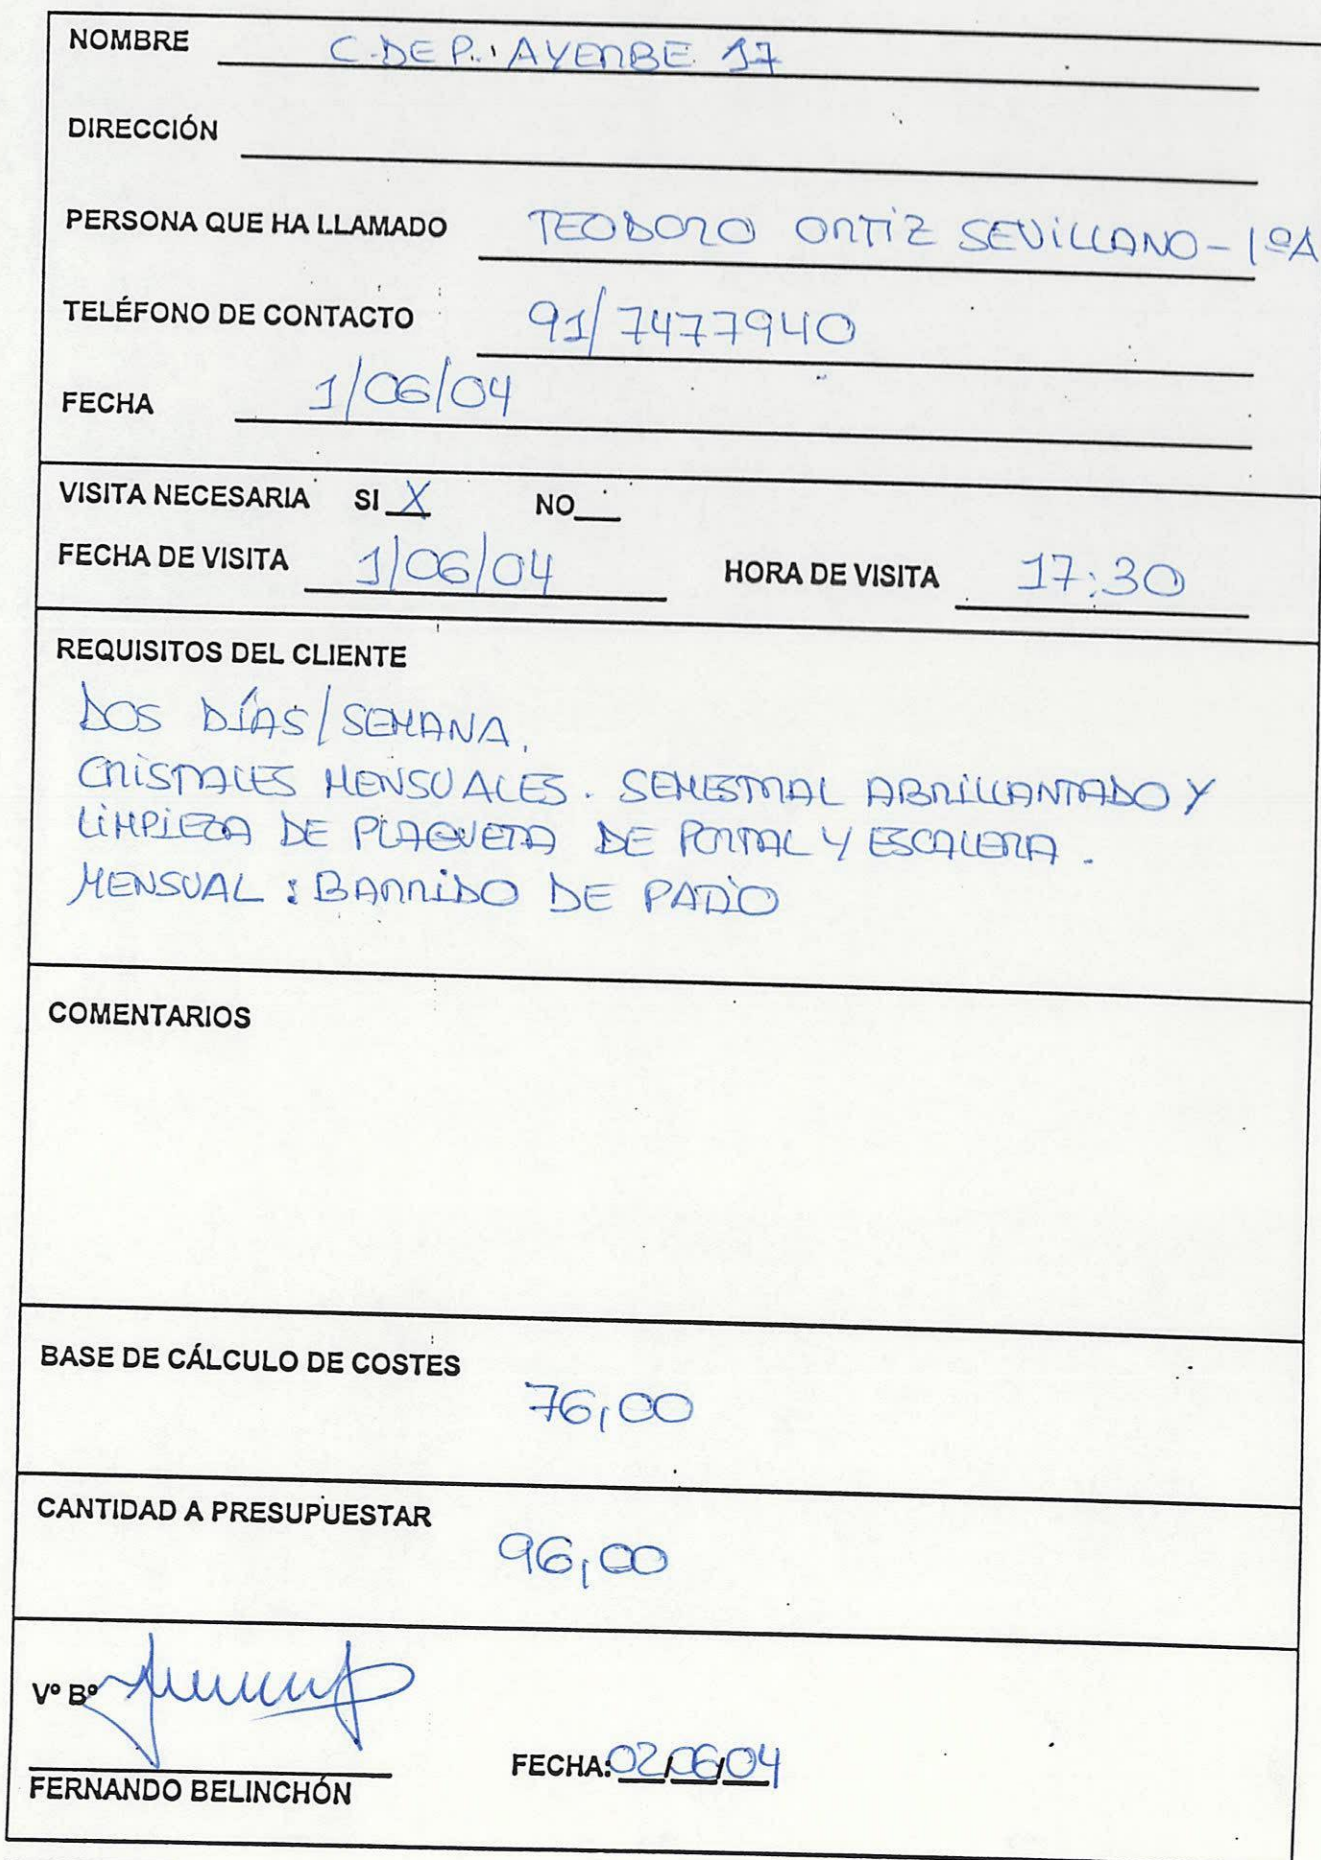 NOMBRE C. DE P. AYERBE 17
DIRECCIÓN
PERSONA QUE HA LLAMADO TEODORO ORTIZ SEVILLANO - 1ºA
TELÉFONO DE CONTACTO 91/7477940
FECHA 1/06/04
VISITA NECESARIA SI X NO
FECHA DE VISITA 1/06/04 HORA DE VISITA 17:30
REQUISITOS DEL CLIENTE
DOS DÍAS/SEMANA.
CRISTALES MENSUALES. SEMESTRAL ABRILLANTADO Y
LIMPIEZA DE PLAQUETA DE PORTAL Y ESCALERA.
MENSUAL: BARRIDO DE PATIO
COMENTARIOS
BASE DE CÁLCULO DE COSTES
76,00
CANTIDAD A PRESUPUESTAR
96,00
Vº Bº
FECHA: 02/06/04
FERNANDO BELINCHÓN